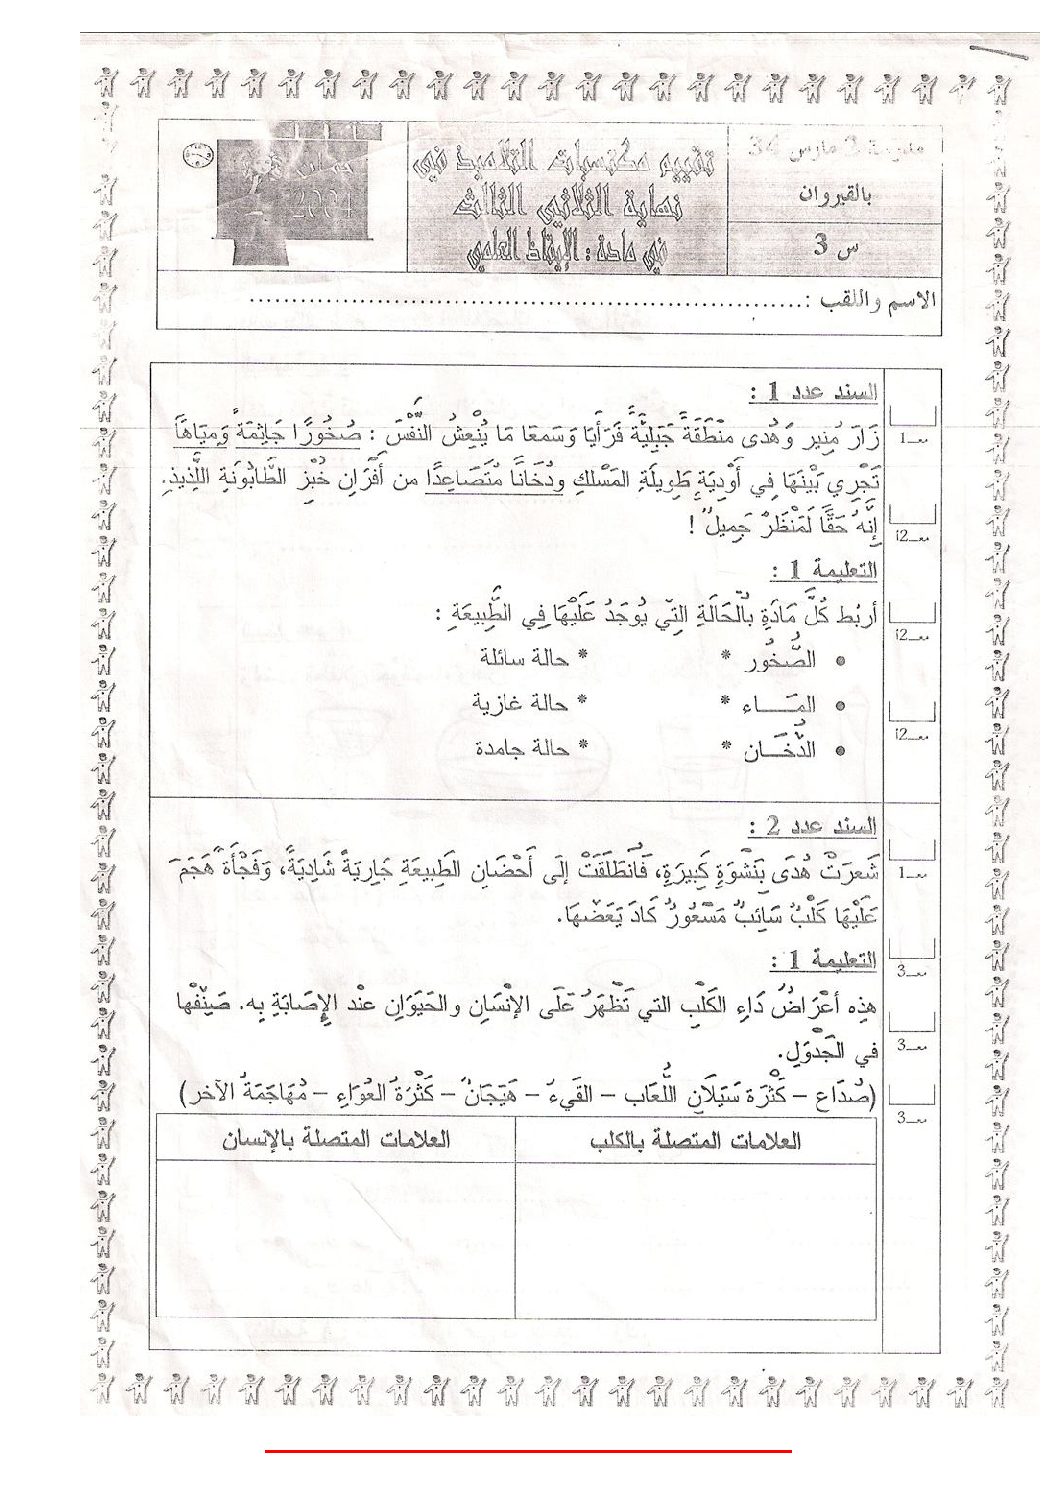 مدرسة 3 مارس 34
بالقيروان
س 3
تقييم مكتسبات التلاميذ في
نهاية الثلاثي الثالث
في مادة : الإيقاظ العلمي
2004
الاسم واللقب :
السند عدد 1 :
زَارَ مُنِير وَهُدى مِنْطَقَةً جَبَلِيَّةً فَرَأَيَا وَسَمعَا مَا يُنْعِشُ النَّفْسَ : صُخُورًا جَاثِمَةً وَمِيَاهًا
تَجْرِي بَيْنَهَا فِي أَوْدِيَةٍ طَوِيلَةِ المَسْلكِ ودُخَانًا مُتَصَاعِدًا من أَفْرَانِ خُبْزِ الطَّابُونَةِ اللَّذِيذِ.
إِنَّهُ حَقًّا لَمَنْظَرٌ جَمِيلٌ !
التعليمة 1 :
أربُط كُلَّ مَادَةٍ بالْحَالَةِ التِي يُوجَدُ عَلَيْهَا فِي الطَّبِيعَةِ :
• الصُّخُور * * حالة سائلة
• المَـــاء * * حالة غازية
• الدُّخَــان * * حالة جامدة
معـ1
معـ2أ
معـ2أ
معـ2أ
السند عدد 2 :
شَعرَتْ هُدَى بِنَشْوَةٍ كَبِيرَةٍ، فَانْطَلَقَتْ إلَى أَحْضَانِ الطَبِيعَةِ جَارِيَةً شَادِيَةً، وَفَجْأَةً هَجَمَ
عَلَيْهَا كَلْبٌ سَائِبٌ مَسْعُورٌ كَادَ يَعَضّهَا.
التعليمة 1 :
هذِه أعْرَاضُ دَاءِ الكَلْبِ التي تَظْهَرُ عَلَى الإنْسَانِ والحَيَوَانِ عنْد الإِصَابَةِ بِه. صَنِّفْها
في الجَدْوَلِ.
(صُدَاع – كَثْرَة سَيَلَانِ اللُّعَاب – القَيءُ – هَيَجَانٌ – كَثْرَةُ العُوَاءِ – مُهَاجَمَةُ الآخر)
العلامات المتصلة بالكلب العلامات المتصلة بالإنسان
معـ1
معـ3
معـ3
معـ3